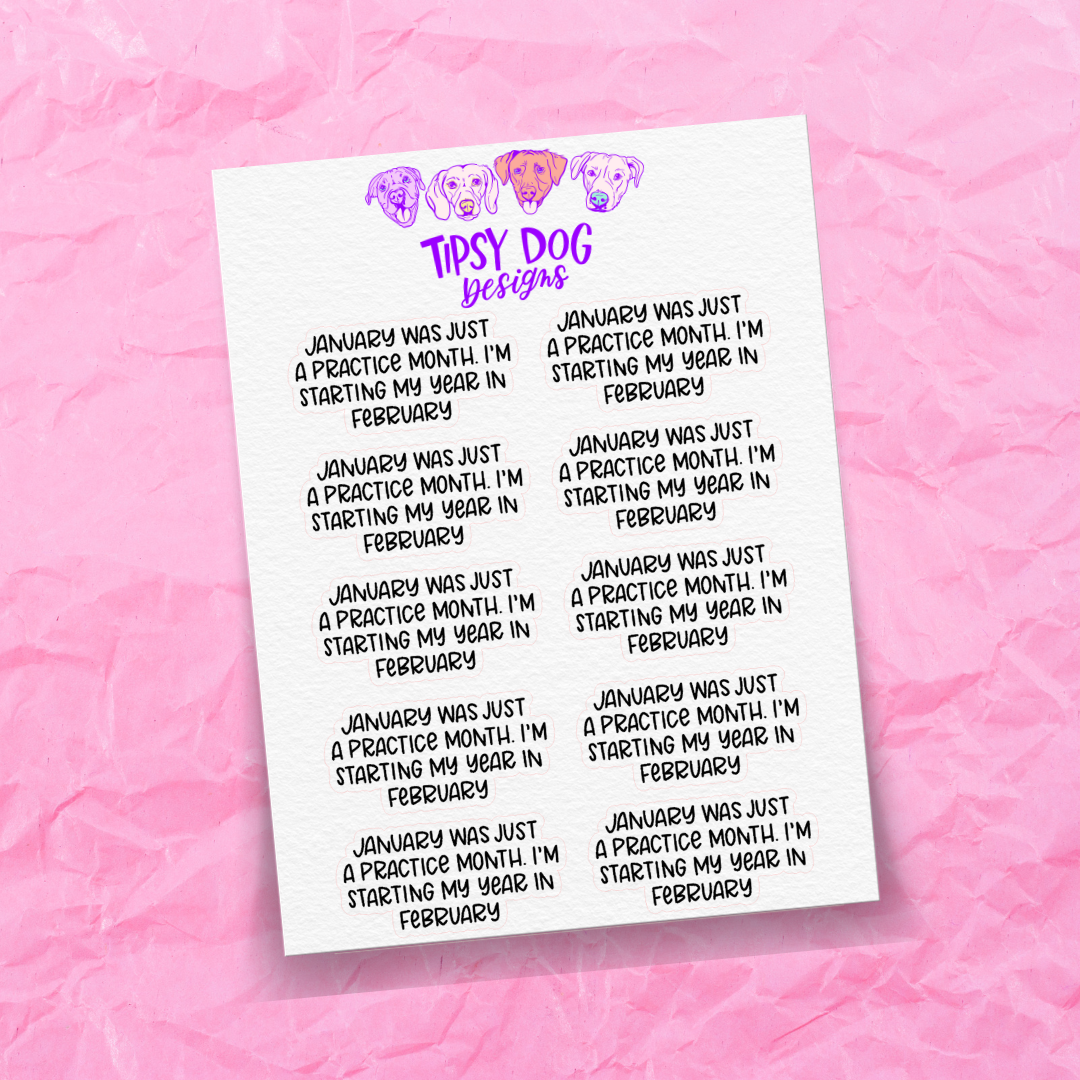 TIPSY DOG
Designs
JANUARY WAS JUST
A PRACTICE MONTH. I'M
STARTING MY YEAR IN
FEBRUARY
JANUARY WAS JUST
A PRACTICE MONTH. I'M
STARTING MY YEAR IN
FEBRUARY
JANUARY WAS JUST
A PRACTICE MONTH. I'M
STARTING MY YEAR IN
FEBRUARY
JANUARY WAS JUST
A PRACTICE MONTH. I'M
STARTING MY YEAR IN
FEBRUARY
JANUARY WAS JUST
A PRACTICE MONTH. I'M
STARTING MY YEAR IN
FEBRUARY
JANUARY WAS JUST
A PRACTICE MONTH. I'M
STARTING MY YEAR IN
FEBRUARY
JANUARY WAS JUST
A PRACTICE MONTH. I'M
STARTING MY YEAR IN
FEBRUARY
JANUARY WAS JUST
A PRACTICE MONTH. I'M
STARTING MY YEAR IN
FEBRUARY
JANUARY WAS JUST
A PRACTICE MONTH. I'M
STARTING MY YEAR IN
FEBRUARY
JANUARY WAS JUST
A PRACTICE MONTH. I'M
STARTING MY YEAR IN
FEBRUARY